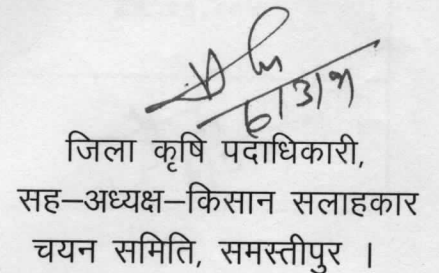 जिला कृषि पदाधिकारी,
सह–अध्यक्ष–किसान सलाहकार
चयन समिति, समस्तीपुर ।